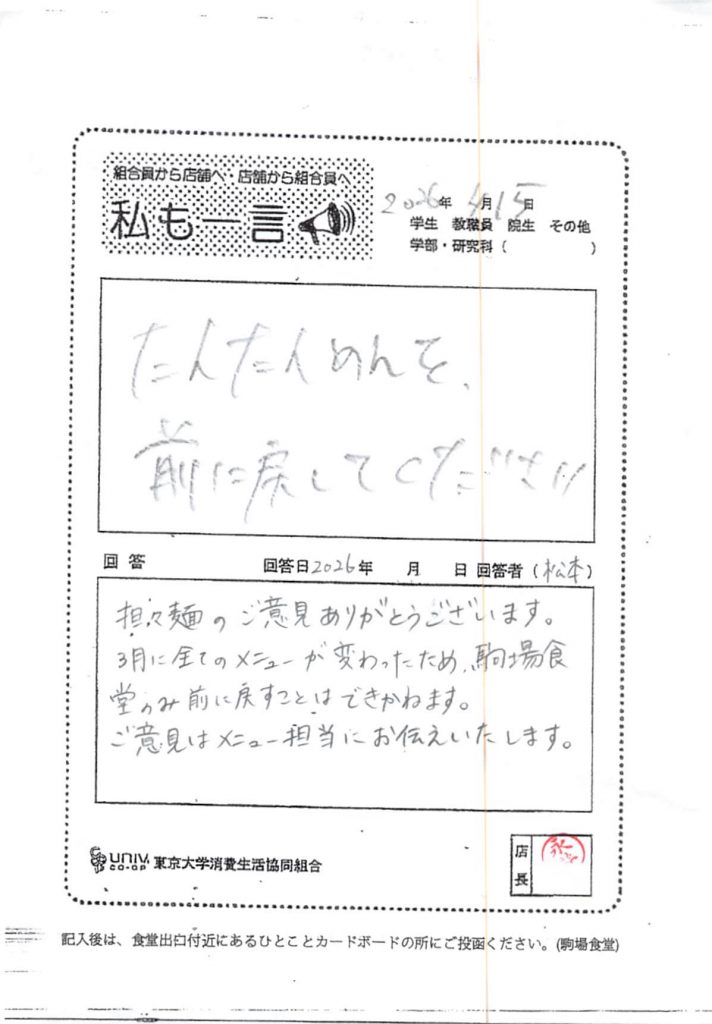 組合員から店舗へ・店舗から組合員へ
私も一言
2026年 4月15日
学生 教職員 院生 その他
学部・研究科( )
たんたんめんを、
前に戻してください
回答 回答日2026年 月 日 回答者(松本)
担々麺のご意見ありがとうございます。
3月に全てのメニューが変わったため、駒場食
堂のみ前に戻すことはできかねます。
ご意見はメニュー担当にお伝えいたします。
UNIV. CO-OP 東京大学消費生活協同組合
店長
記入後は、食堂出口付近にあるひとことカードボードの所にご投函ください。(駒場食堂)